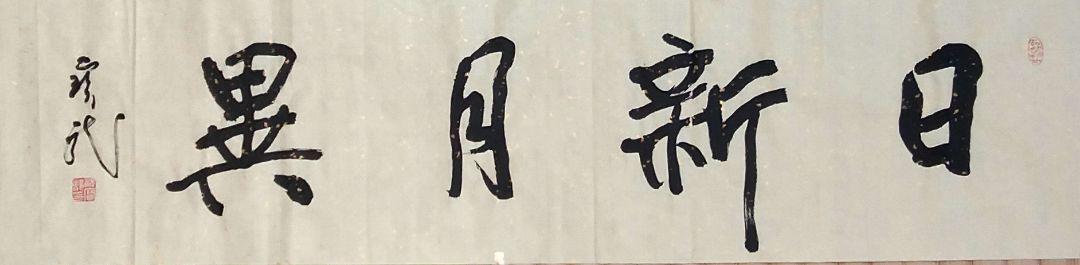 日新月異